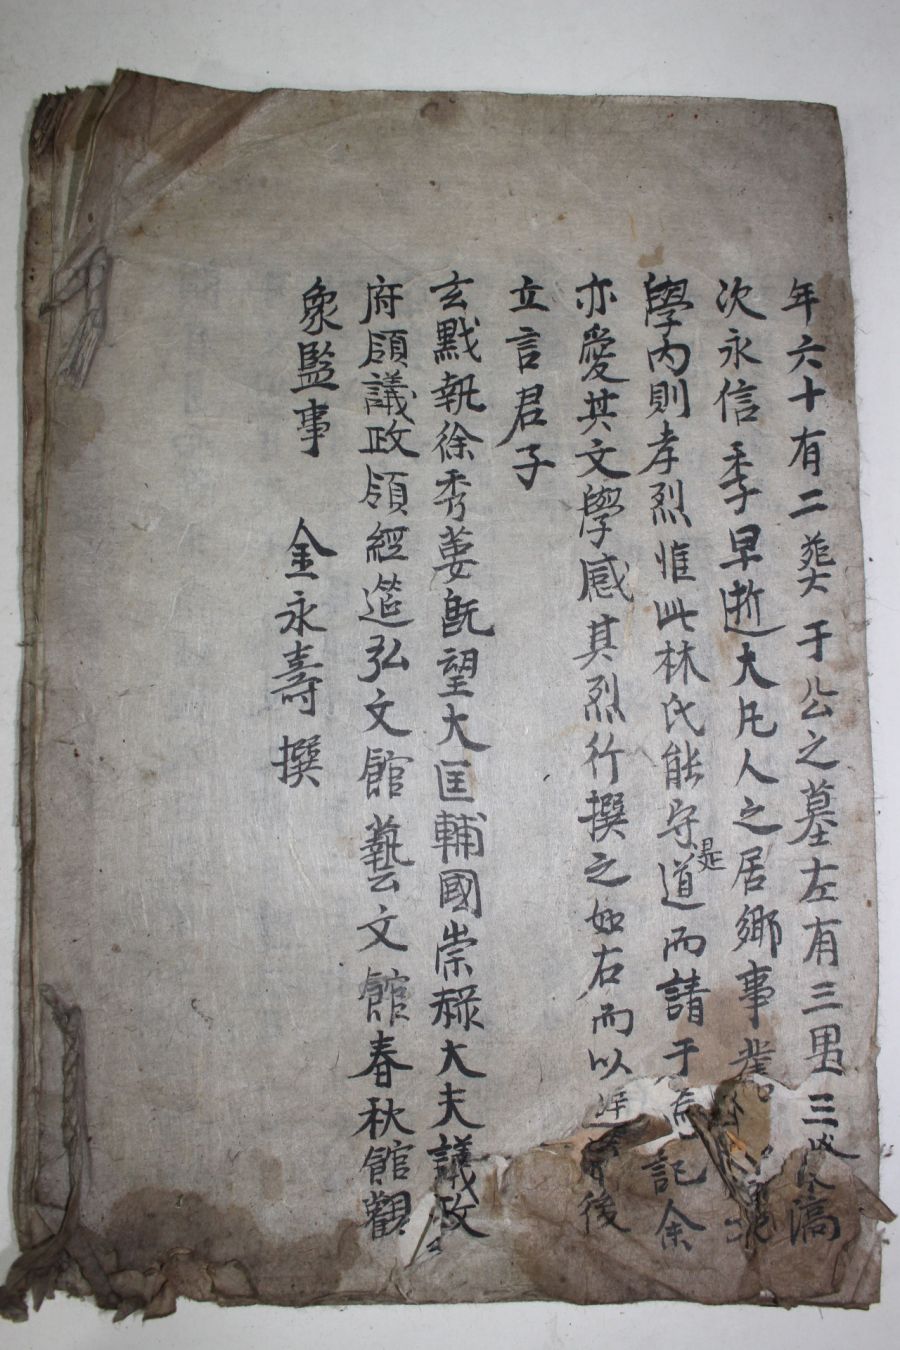 年六十有二葬于公之墓左有三男三
次永信季早逝大凡人之居鄕事
學內則孝烈惟此林氏能守是道而請于 記余
亦愛其文學感其烈行撰之如右而以 後
立言君子
玄黓執徐秀葽旣望大匡輔國崇祿大夫議政
府領議政領經筵弘文館藝文館春秋館觀
象監事 金永壽撰